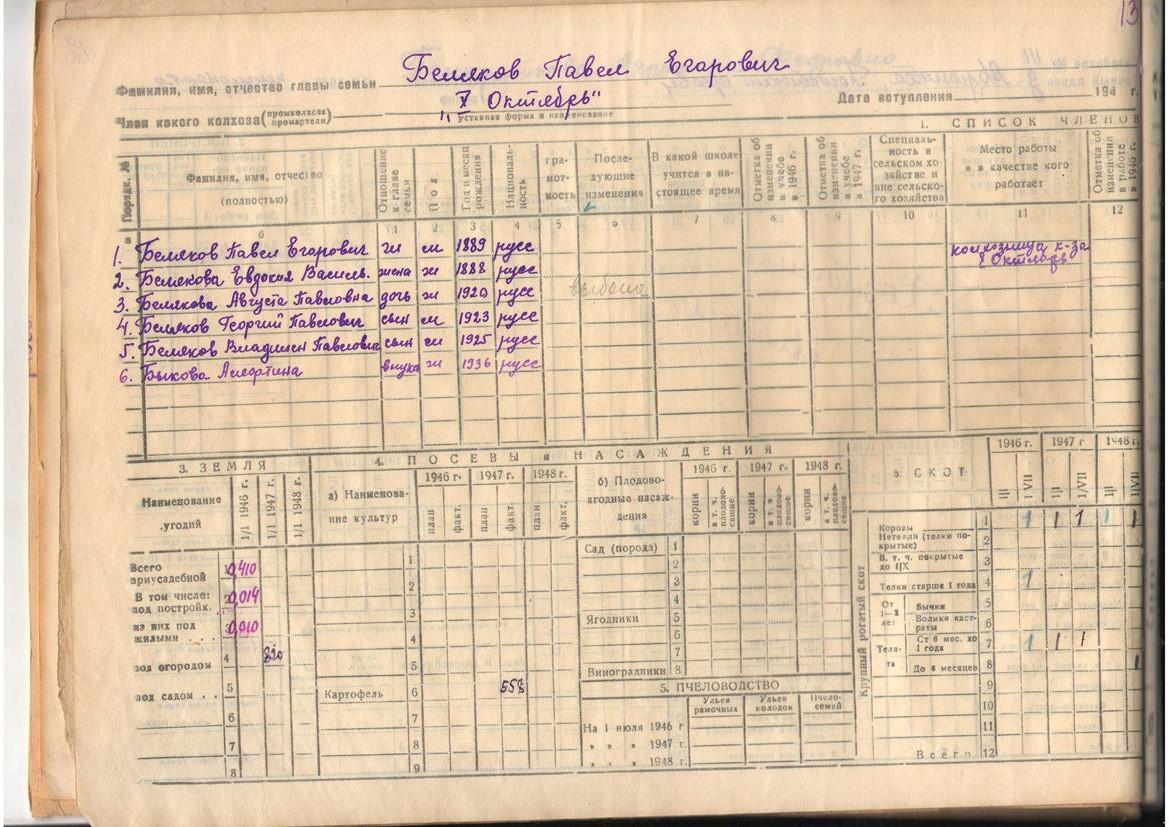 13
Беляков Павел Егарович
Фамилия, имя, отчество главы семьи
„7 Октябрь"
Дата вступления 194 г.
Член какого колхоза (промколхоза промартели)
уставная форма и наименование
1. СПИСОК ЧЛЕНОВ
Порядк. №
Фамилия, имя, отчество (полностью)
Отношение к главе семьи
Пол
Год и месяц рождения
Националь-ность
гра-мот-ность
После-дующие изменения
В какой школе учится в на-стоящее время
Отметка об изменении в учебе в 1946 г.
Отметка об изменении в учебе в 1947 г.
Специаль-ность в сельском хо-зяйстве и вне сельско-го хозяйства
Место работы и в качестве кого работает
Отметка об изменении в работе в 1946 г.
а б 1 2 3 4 5 6 7 8 9 10 11 12
1. Беляков Павел Егарович ги м 1889 русс
колхозница к-за
Октябрь
2. Белякова Евдокия Василь. жена ж 1888 русс
3. Белякова Августа Павловна дочь ж 1920 русс
4. Беляков Георгий Павлович сын м 1923 русс
5. Беляков Владимен Павлович сын м 1925 русс
6. Быкова внука ж 1936 русс
3. ЗЕМЛЯ
Наименование угодий
1/I 1946 г.
1/I 1947 г.
1/I 1948 г.
Всего приусадебной 1 0,410
В том числе: под постройк. 2 0,014
из них под жилыми 3 0,010
под огородом 4 820
под садом 5
6
7
8
4. ПОСЕВЫ и НАСАЖДЕНИЯ
а) Наименова-ние культур
1946 г. 1947 г. 1948 г.
план факт. план факт. план факт.
1
2
3
4
5
Картофель 6
7
8
9
б) Плодово-ягодные насаж-дения
1946 г. 1947 г. 1948 г.
корни в т. ч. плодоно-сящие корни в т. ч. плодоно-сящие корни в т. ч. плодоно-сящие
Сад (порода) 1
2
3
4
Ягодники 5
6
7
Виноградники 8
5. ПЧЕЛОВОДСТВО
Ульев рамочных
Ульев колодок
Пчело-семей
На 1 июля 1946 г
" " " 1947 г.
" " " 1948 г.
СКОТ
1946 г. 1947 г 1948 г
1/I 1/VII 1/I 1/VII 1/I 1/VII
Крупный рогатый скот
Коровы 1 1 1 1 1 1
Нетели (телки по-крытые) 2
В т. ч. покрытые до 1/IX 3
Телки старше 1 года 4 1
От 1—2 лет: Бычки 5
Волики каст-раты 6
Теля-та Ст 6 мес. до 1 года 7 1 1 1
До 6 месяцев 8 1
9
10
11
Всего 12